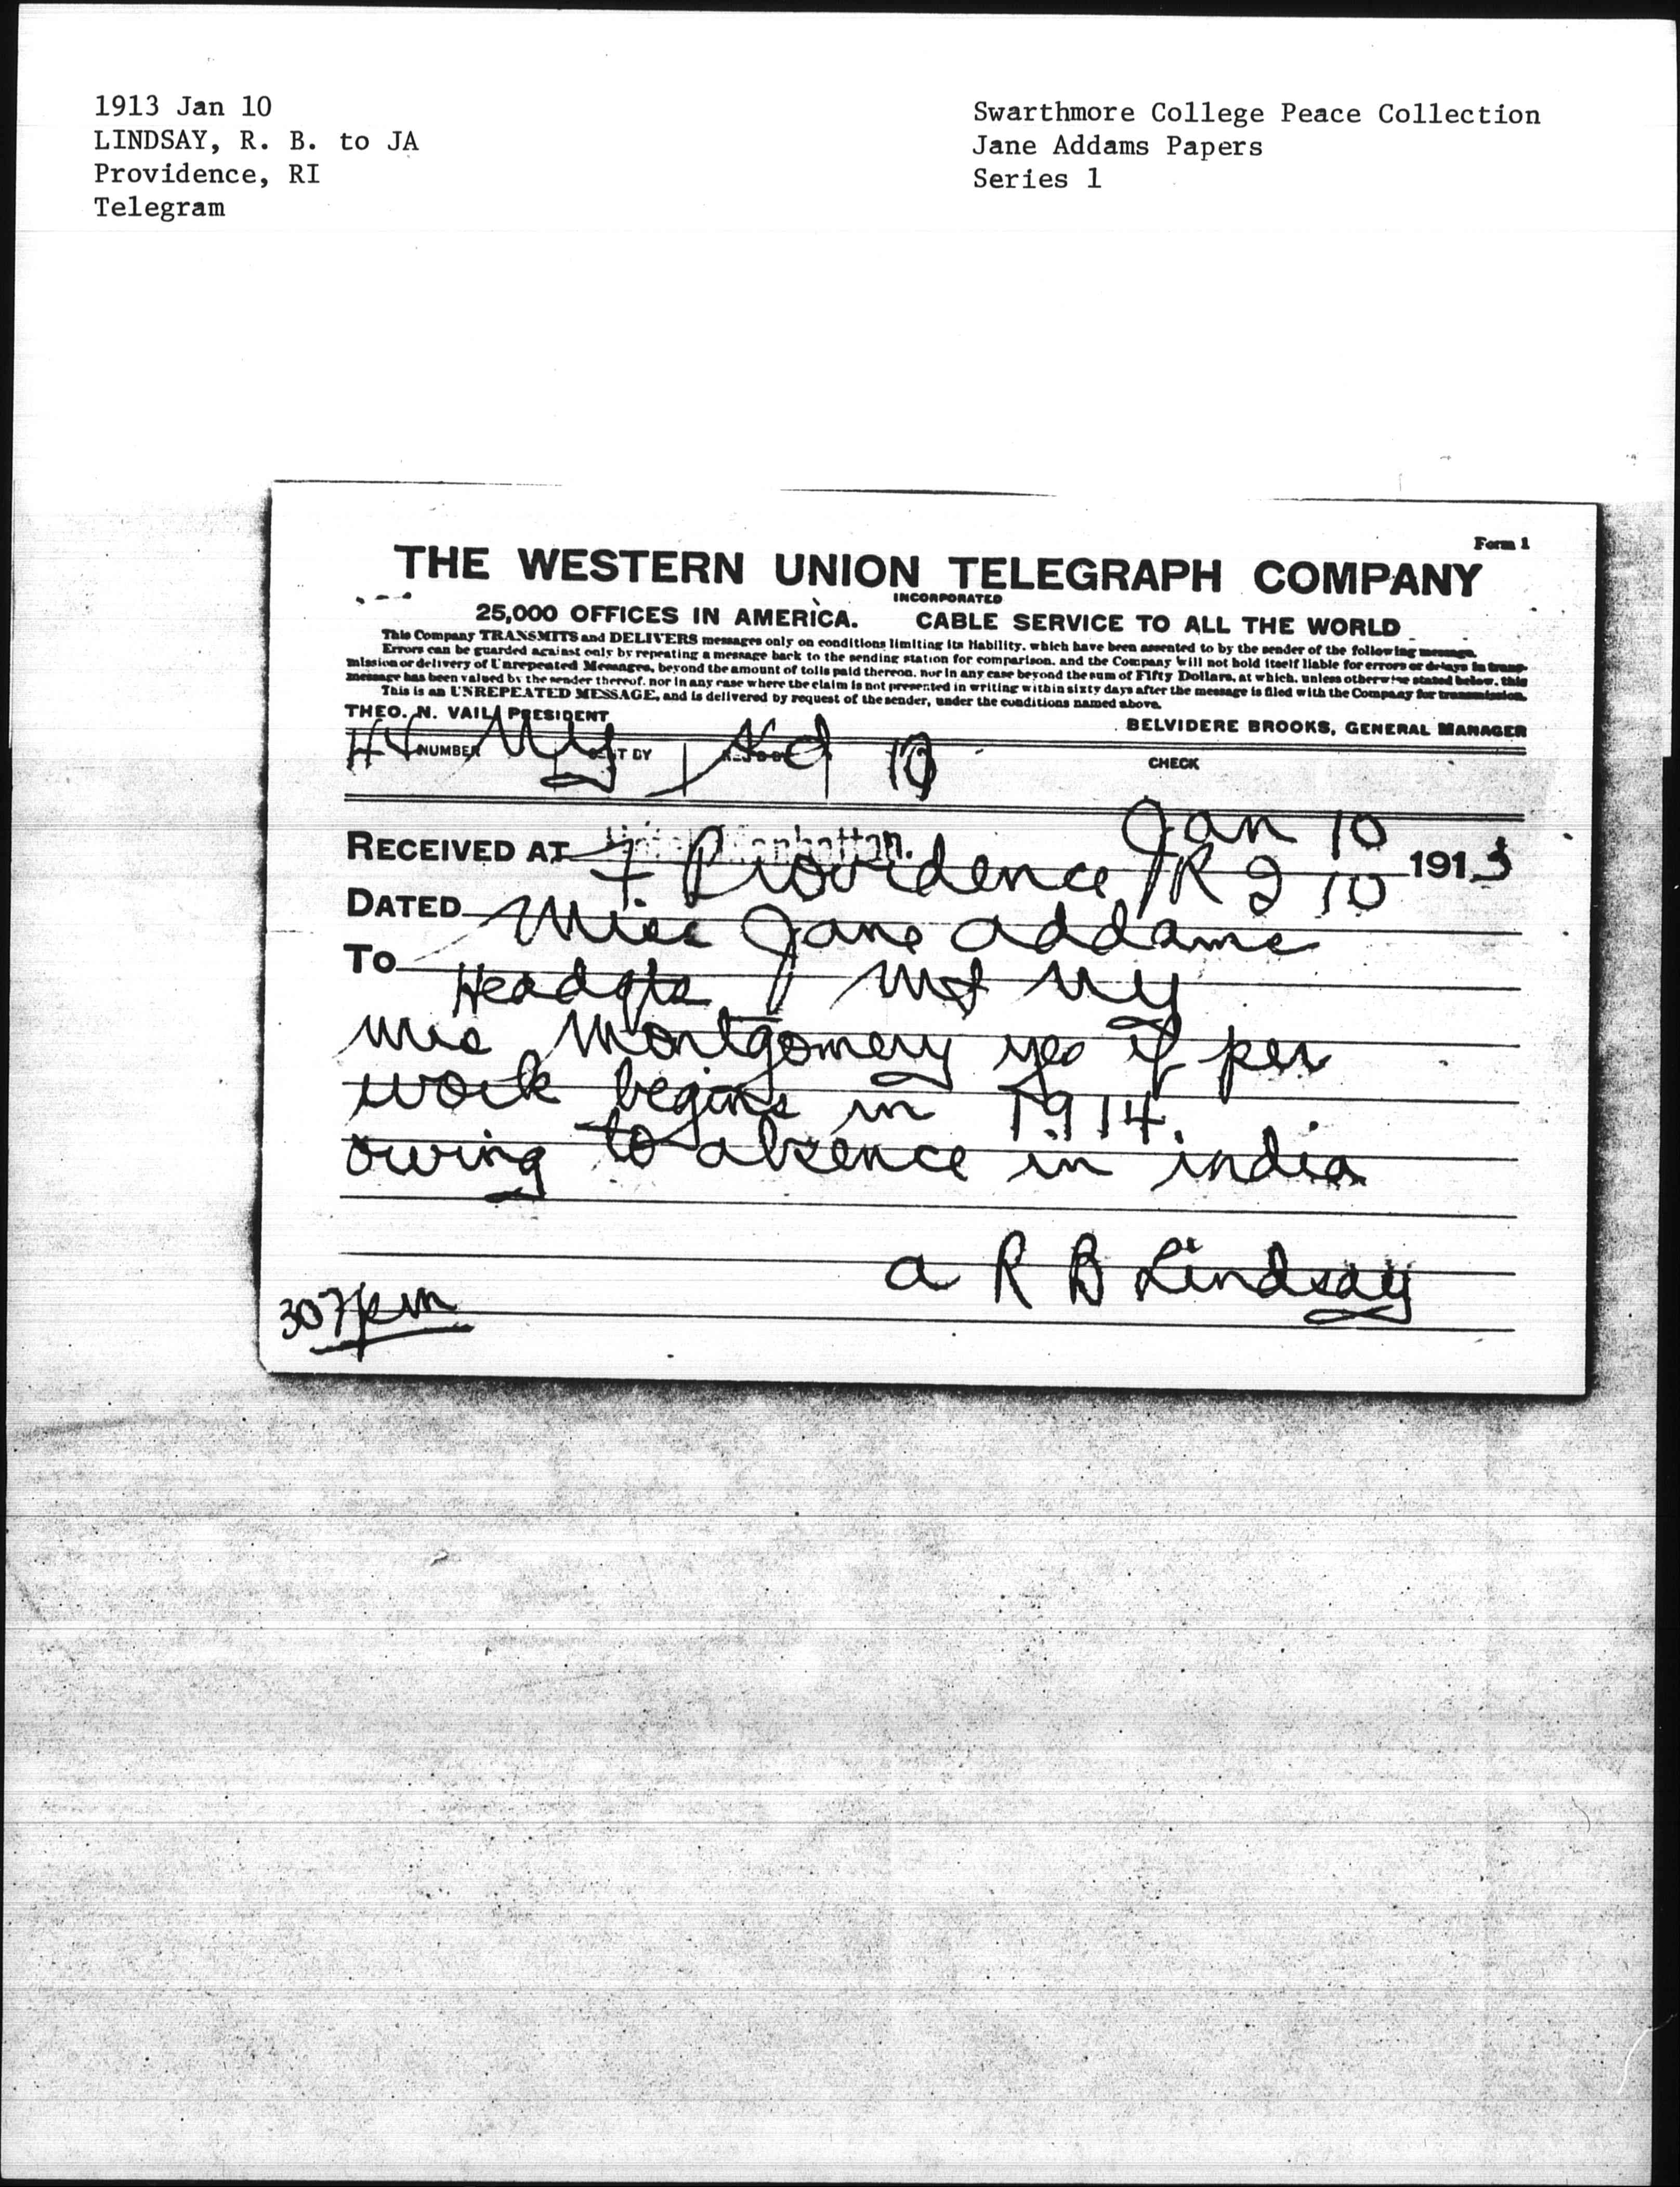 1913 Jan 10
LINDSAY, R. B. to JA
Providence, RI
Telegram
Swarthmore College Peace Collection
Jane Addams Papers
Series 1
Form 1
THE WESTERN UNION TELEGRAPH COMPANY
INCORPORATED
25,000 OFFICES IN AMERICA. CABLE SERVICE TO ALL THE WORLD
This Company TRANSMITS and DELIVERS messages only on conditions limiting its liability, which have been assented to by the sender of the following message.
Errors can be guarded against only by repeating a message back to the sending station for comparison, and the Company will not hold itself liable for errors or delays in trans-
mission or delivery of Unrepeated Messages, beyond the amount of tolls paid thereon, nor in any case beyond the sum of Fifty Dollars, at which, unless otherwise stated below, this
message has been valued by the sender thereof, nor in any case where the claim is not presented in writing within sixty days after the message is filed with the Company for transmission.
This is an UNREPEATED MESSAGE, and is delivered by request of the sender, under the conditions named above.
THEO. N. VAIL, PRESIDENT BELVIDERE BROOKS, GENERAL MANAGER
44 NUMBER NY SENT BY REC'D BY 10 CHECK
Jan 10
RECEIVED AT Hotel Manhattan. 1913
Providence R I 10
DATED
Miss Jane Addams
TO
Headqts NY
Mrs Montgomery yes if per
work begins in 1914.
owing to absence in india
a R B Lindsay
307pm